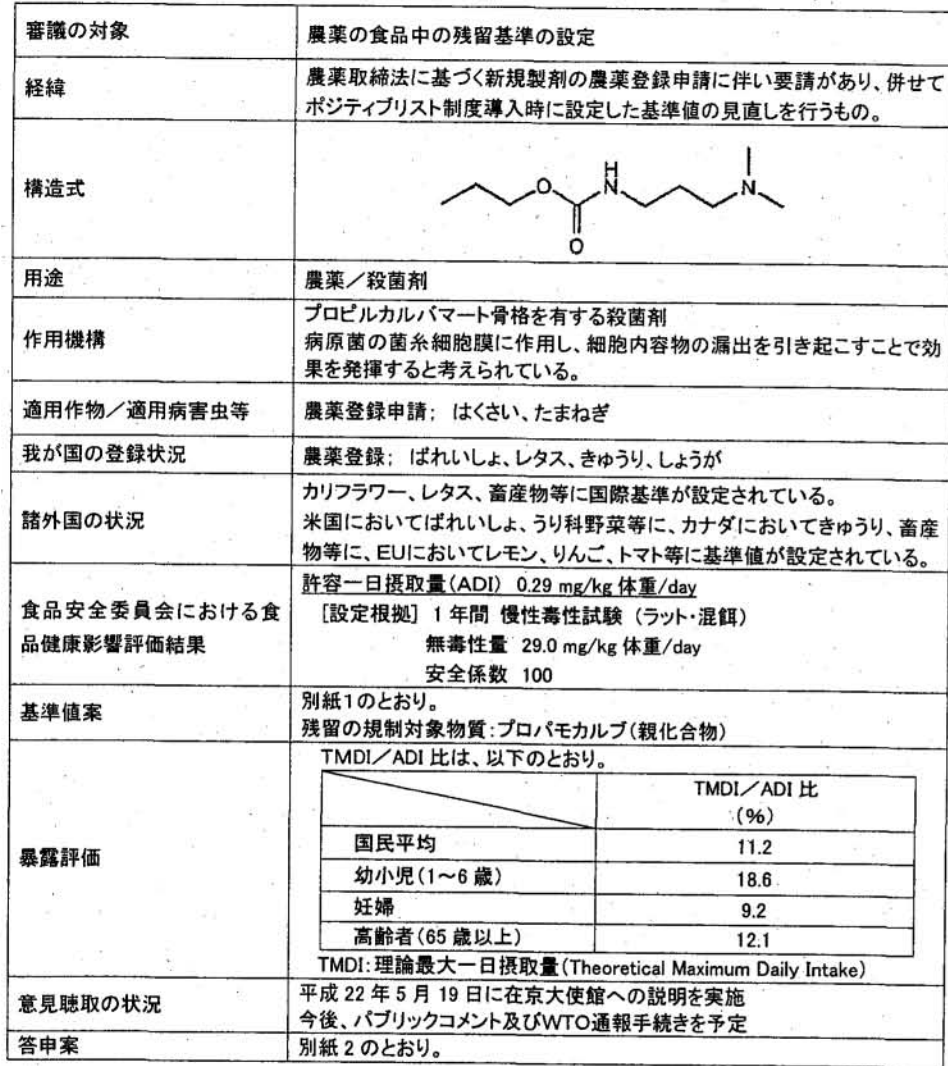 審議の対象
農薬の食品中の残留基準の設定
経緯
農薬取締法に基づく新規製剤の農薬登録申請に伴い要請があり、併せて
ポジティブリスト制度導入時に設定した基準値の見直しを行うもの。
構造式
O
H
N
N
O
用途
農薬／殺菌剤
作用機構
プロピルカルバマート骨格を有する殺菌剤
病原菌の菌糸細胞膜に作用し、細胞内容物の漏出を引き起こすことで効
果を発揮すると考えられている。
適用作物／適用病害虫等
農薬登録申請； はくさい、たまねぎ
我が国の登録状況
農薬登録； ばれいしょ、レタス、きゅうり、しょうが
諸外国の状況
カリフラワー、レタス、畜産物等に国際基準が設定されている。
米国においてばれいしょ、うり科野菜等に、カナダにおいてきゅうり、畜産
物等に、EUにおいてレモン、りんご、トマト等に基準値が設定されている。
食品安全委員会における食
品健康影響評価結果
許容一日摂取量(ADI) 0.29 mg/kg 体重/day
[設定根拠] 1 年間 慢性毒性試験 (ラット・混餌)
無毒性量 29.0 mg/kg 体重/day
安全係数 100
基準値案
別紙1のとおり。
残留の規制対象物質：プロパモカルブ(親化合物)
暴露評価
TMDI／ADI 比は、以下のとおり。
TMDI／ADI 比
(%)
国民平均 11.2
幼小児(1～6 歳) 18.6
妊婦 9.2
高齢者(65 歳以上) 12.1
TMDI：理論最大一日摂取量(Theoretical Maximum Daily Intake)
意見聴取の状況
平成 22 年 5 月 19 日に在京大使館への説明を実施
今後、パブリックコメント及びWTO通報手続きを予定
答申案
別紙 2 のとおり。